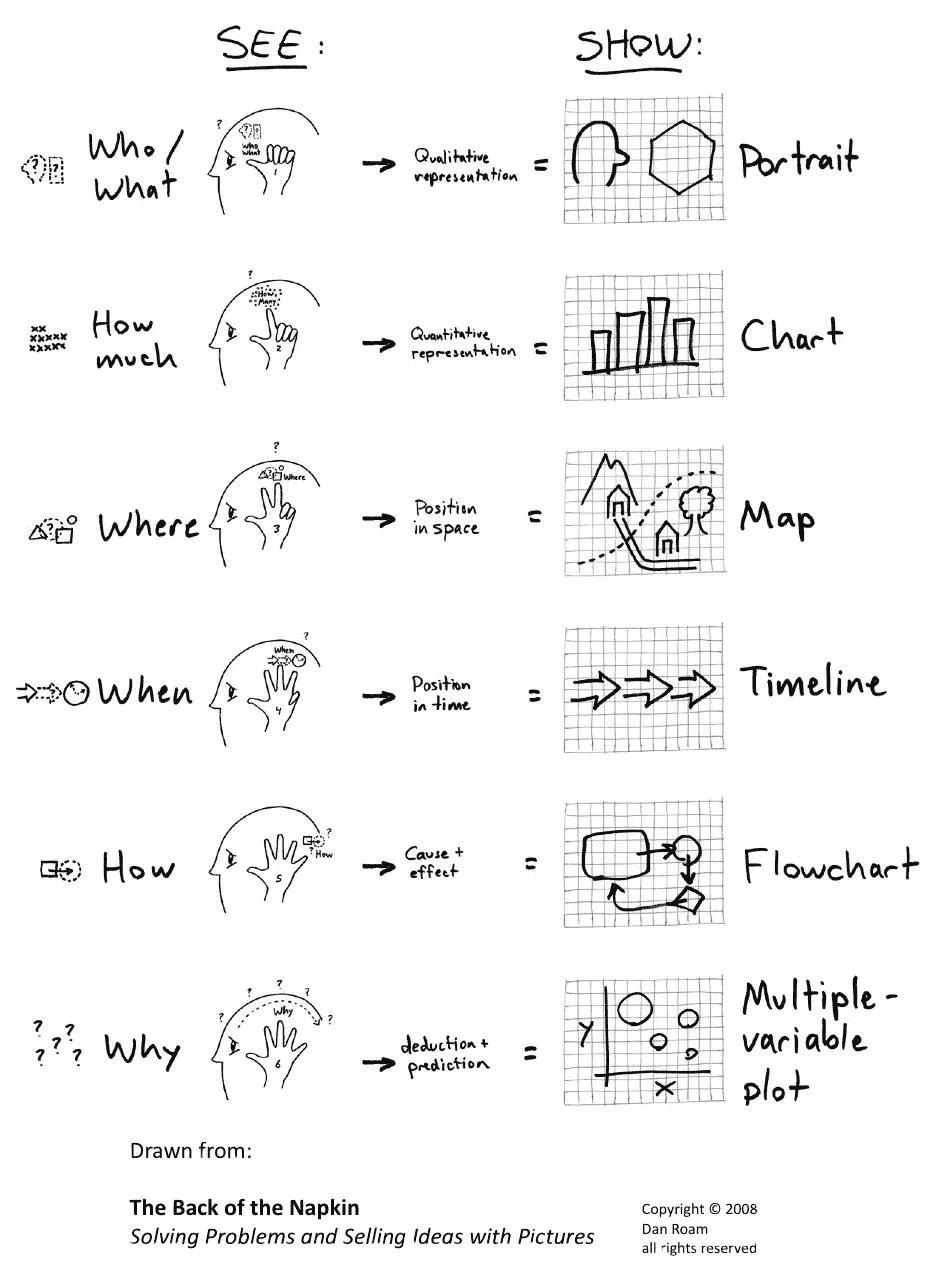 SEE: SHOW:
?
? ?
Who
What
1
Who/
What
→ Qualitative
representation =
Portrait
?
How
Many
2
xx
xxxxx
xxxxx
How
much
→ Quantitative
representation =
Chart
?
? Where
3
?
Where
→ Position
in space =
Map
?
When
?
4
?
When
→ Position
in time =
Timeline
?
? How
5
?
How
→ Cause +
effect =
Flowchart
? ? ? ?
Why
6
? ? ? ? ?
Why
→ deduction +
prediction =
Y
X
Multiple-
variable
plot
Drawn from:
The Back of the Napkin
Solving Problems and Selling Ideas with Pictures
Copyright © 2008
Dan Roam
all rights reserved